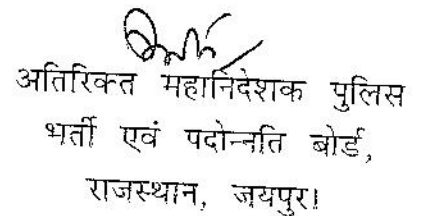 अतिरिक्त महानिदेशक पुलिस
भर्ती एवं पदोन्नति बोर्ड,
राजस्थान, जयपुर।